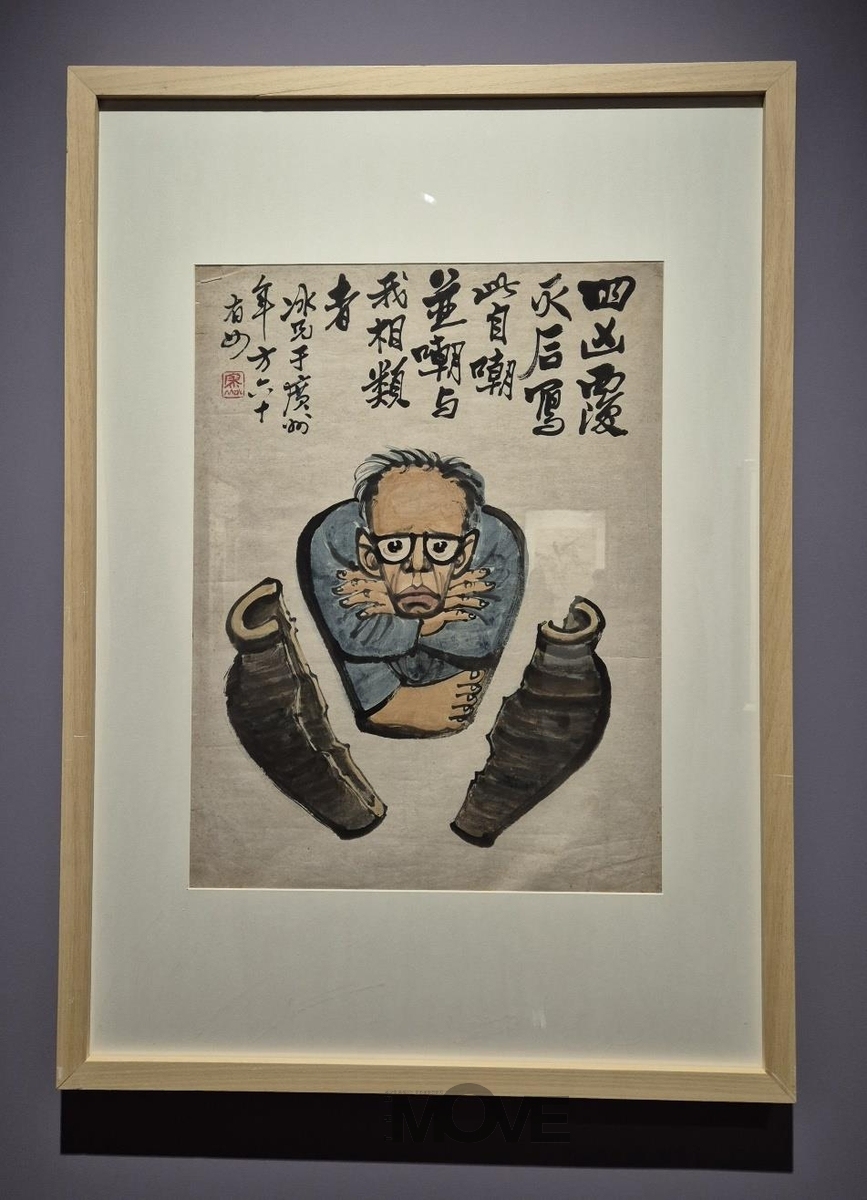 四凶覆
灭后寫
此自嘲
並嘲与
我相類
者
冰兄于廣州
年方六十
有四
MOVE